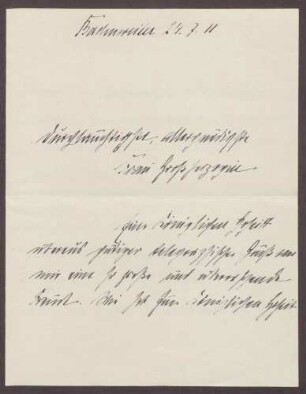 Badenweiler 24.7.11
Durchlauchtigste, allergnädigste
Frau Großherzogin
Euer Königlichen Hoheit
überaus gütiger telegraphischer Gruß war
mir eine so große und überraschende
Freude. Euer Königlichen Hoheit